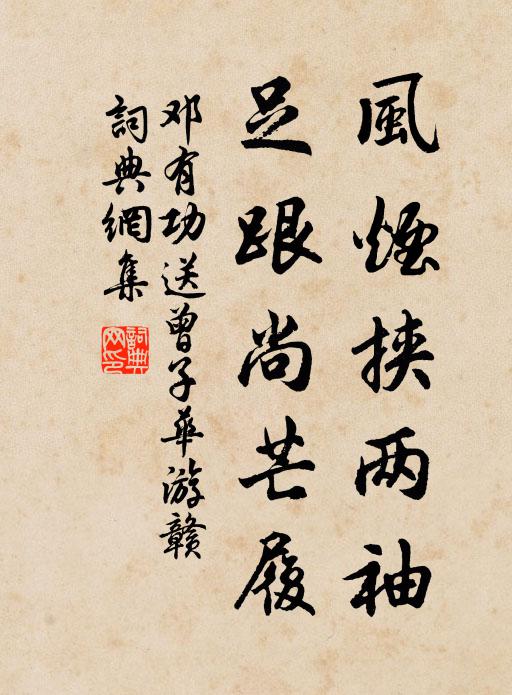 風煙挟两袖
足跟尚芒履
邓有功送曾子華游贛
詞典網集
詞典网印